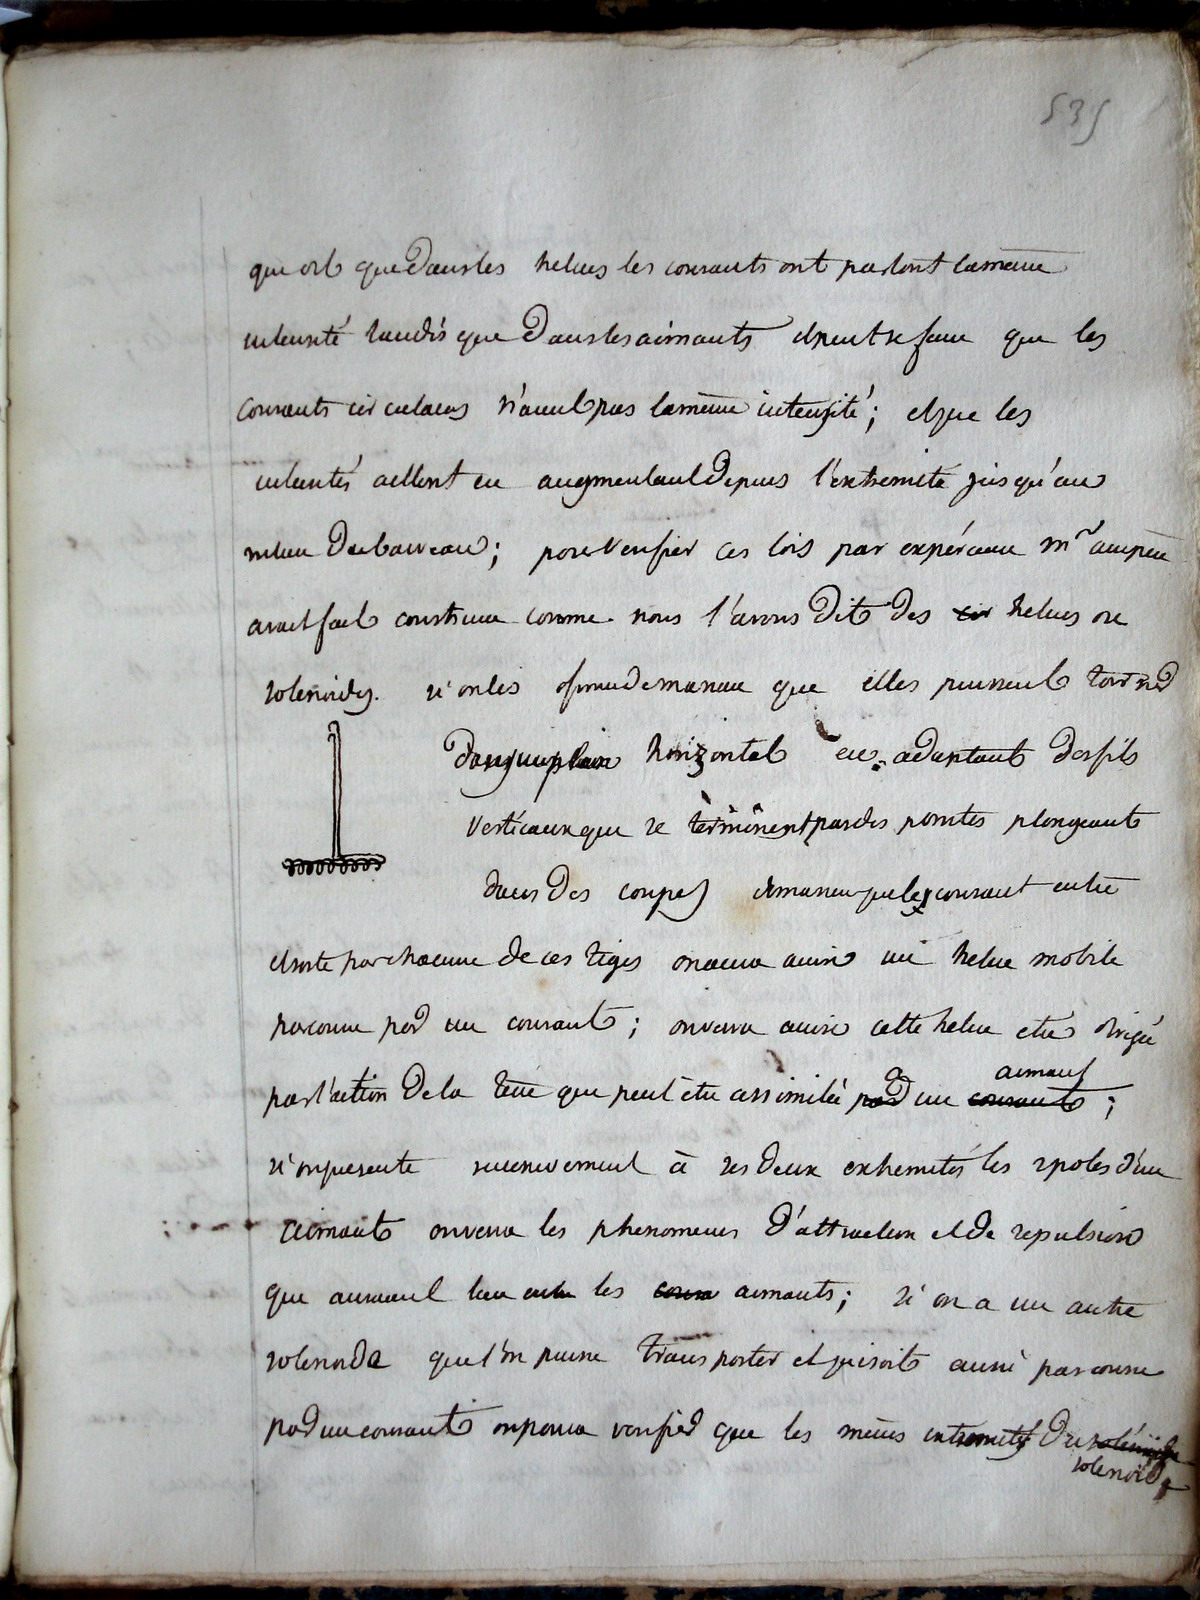 535
qui est que dans les helices les courants ont partout la meme
intensité tandis que dans les aimants il peut se faire que les
courants circulaires n'aient pas la même intensité; et que les
intensités aillent en augmentant depuis l'extremité jusqu'au
milieu du barreau; pour verifier ces lois par expérience Mr ampere
avait fait construire comme nous l'avons dit des cir helices ou
solenoides. si on les dispose de maniere que elles puissent tourner
dans un plan horizontal en adaptant des fils
verticaux qui se terminent par des pointes plongeant
dans des coupes de maniere que le courant entre
et sorte par chacune de ces tiges on aura ainsi une helice mobile
parcourue par un courant; on verra ainsi cette helice etre dirigée
par l'action de la terre qui peut être assimilée par à un courant aimant;
si on presente successivement à ses deux extremités les 2 poles d'un
aimant on verra les phenomenes d'attraction et de repulsion
qui auraient lieu entre les coura aimants; si on a un autre
solenoide que l'on puisse transporter et qui soit aussi parcouru
par un courant on pourra verifier que les mêmes extremités du solénoide
solenoide